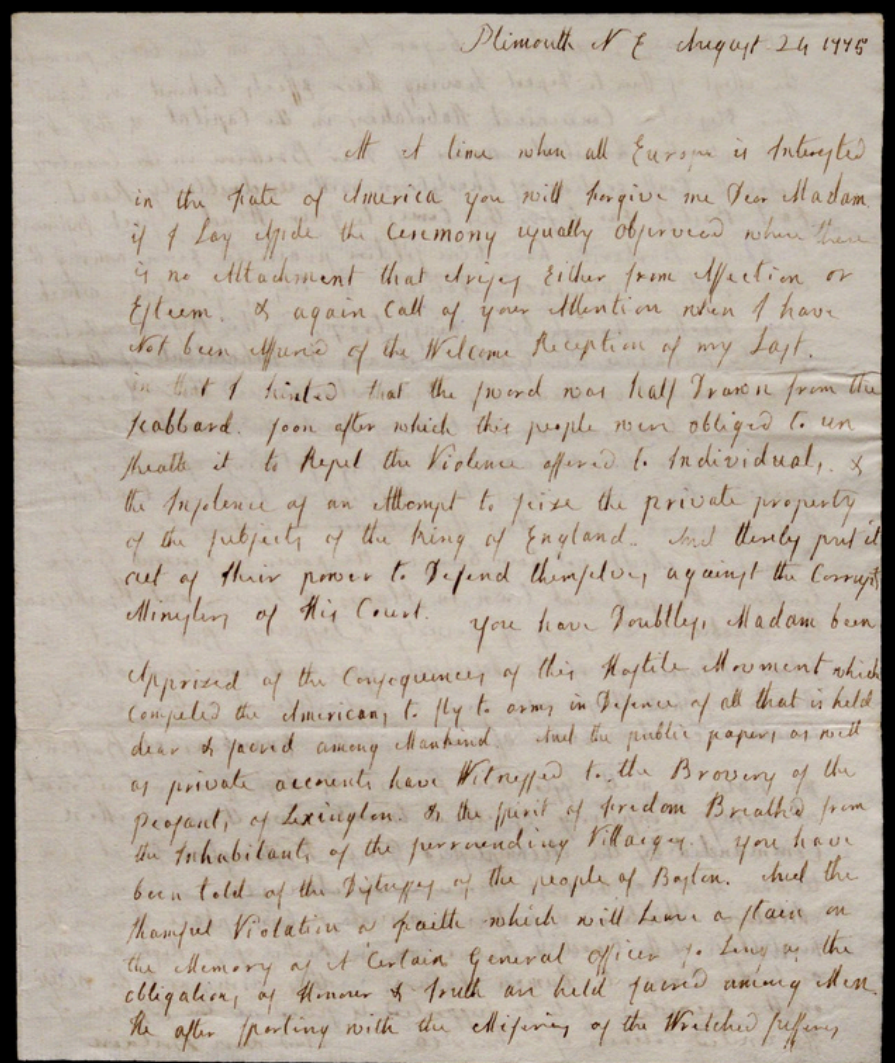 Plimouth N E August 24 1775
At A time when all Europe is Interested
in the fate of America you will forgive me Dear Madam
if I Lay Aside the Ceremony usually observed where there
is no Attachment that Arises Either from Affection or
Esteem. & again Call of your Attention when I have
Not been Assured of the Welcome Reception of my Last.
in that I hinted that the sword was half Drawn from the
scabbard. soon after which this people were obliged to un
sheath it to Repel the Violence offered to Individuals, &
the Insolence of an Attempt to seize the private property
of the subjects of the King of England. And thereby put it
out of their power to Defend themselves against the Corrupt
Ministers of His Court. you have Doubtless Madam been
Apprized of the Consequences of this Hostile Movement which
Compeled the Americans to fly to arms in Defence of all that is held
dear & sacred among Mankind. And the public papers as well
as private accounts have Witnessed to the Bravery of the
Peasants of Lexington. & the spirit of freedom Breathed from
the Inhabitants of the surrounding Villages. you have
been told of the Distresses of the people of Boston. And the
shamful Violation of faith which will Leave a stain on
the Memory of A Certain General officer so Long as the
obligations of Honour & Truth are held sacred among Men.
He after sporting with the Miseries of the Wretched sufferers